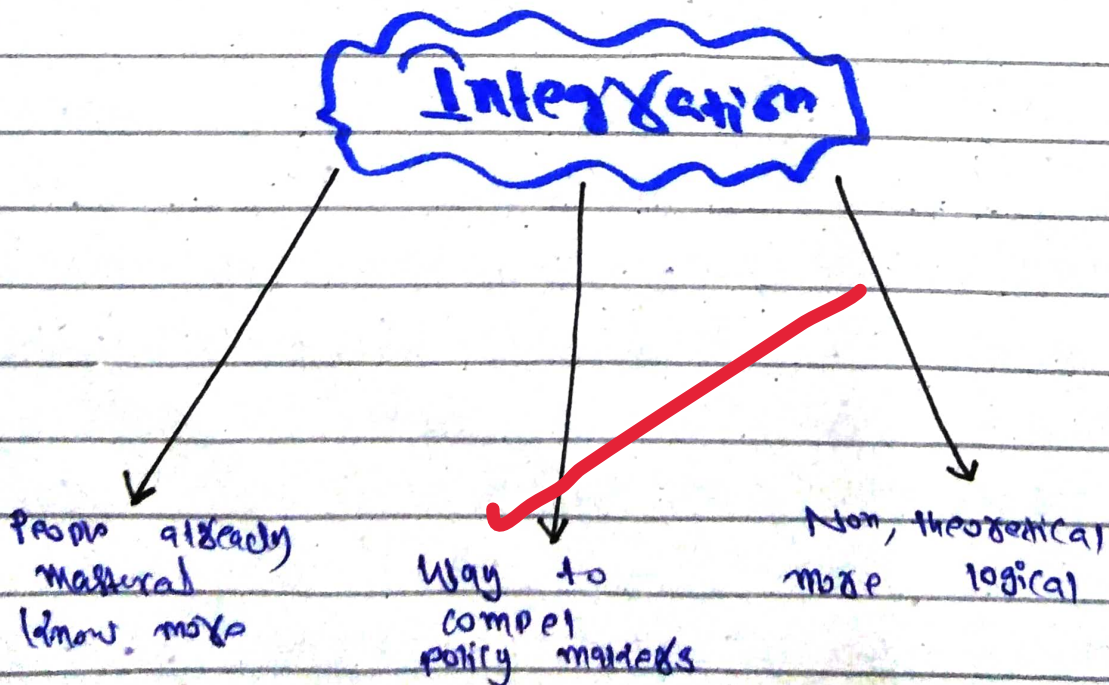 Integration
People already
mastered
know more
Way to
compel
policy makers
Non, theoretical
more logical